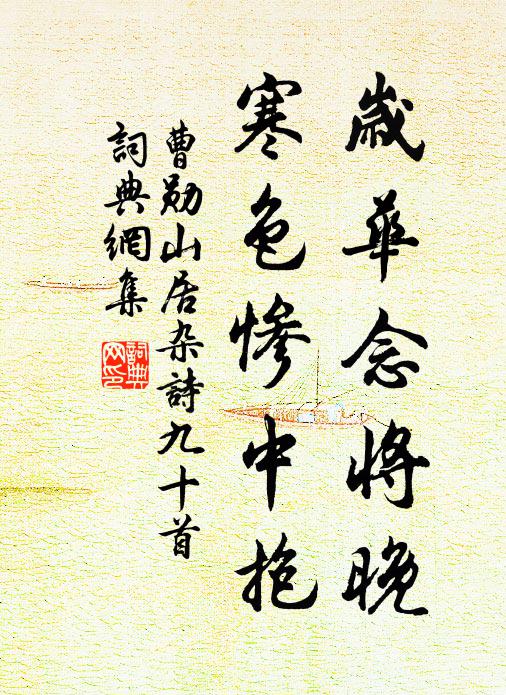 歲華念將晚
寒色慘中抱
曹勛山居杂詩九十首
詞典網集
詞典
网印